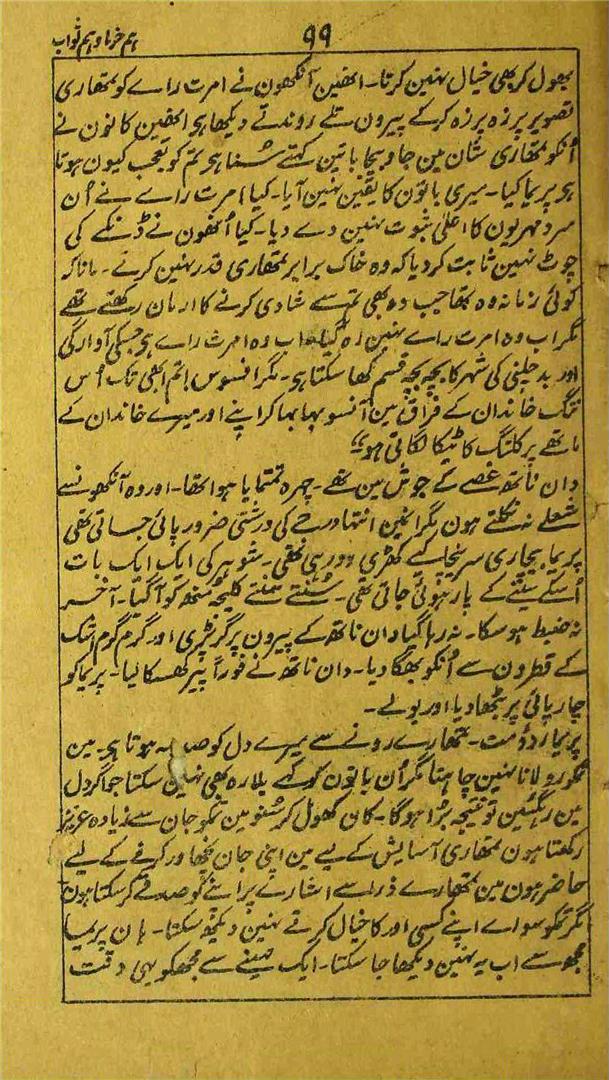 ہم خرما و ہم ثواب
۹۹
بھول کر بھی خیال نہین کرتا۔ انھین آنکھون نے امرت راے کو تمھاری
تصویر پرزہ پرزہ کرکے پیرون تلے روندتے دیکھا ہی انھین کانون نے
اُنکو تمھاری شان مین جا و بیجا باتین کہتے سُنا ہی تم کو تعجب کیون ہوتا
ہی پریما کیا۔ میری باتون کا یقین نہین آیا۔ کیا امرت راے نے اُن
سرد مہریون کا اعلیٰ ثبوت نہین دے دیا۔ کیا اُنھون نے ڈنکے کی
چوٹ نہین ثابت کردیا کہ وہ خاک برابر تمھاری قدر نہین کرتے۔ مانا کہ
کوئی زمانہ وہ تھا جب وہ بھی تم سے شادی کرنے کا ارمان رکھتے تھے
مگر اب وہ امرت راے نہین رہ گیا۔ اب وہ امرت راے ہی جسکی آوارگی
اور بد چلنی کی شہر کا بچہ بچہ قسم کھا سکتا ہی۔ مگر افسوس! تم ابھی تک اُس
ننگ خاندان کے فراق مین آنسو بہا بہا کر اپنے اور میرے خاندان کے
ماتھے پر کلنگ کا ٹیکا لگاتی ہو"
دان ناتھ غصے کے جوش مین تھے۔ چہرہ تمتمایا ہوا تھا۔ اور وہ آنکھونسے
شعلے نہ نکلتے ہون مگر انمین انتہا درجے کی درشتی ضرور پائی جاتی تھی
پریما بیچاری سر نیچا کیے کھڑی رو رہی تھی۔ شوہر کی ایک ایک بات
اُسکے سینے کے پار ہوئی جاتی تھی۔ سُنتے سُنتے کلیجہ منھ کو آگیا۔ آخر
نہ ضبط ہو سکا۔ نہ رہا گیا دان ناتھ کے پیرون پر گر پڑی اور گرم گرم اشک
کے قطرون سے اُنکو بھگا دیا۔ دان ناتھ نے فوراً پیر کھسکا لیا۔ پریما کو
چارپائی پر بٹھا دیا اور بولے۔
پریما روؤ مت۔ تمھارے رونے سے میرے دل کو صدمہ ہوتا ہی۔ مین
تمکو رولانا نہین چاہتا مگر اُن باتون کو کہے بلا رہ بھی نہین سکتا جو اگر دل
مین رہگئین تو نتیجہ بُرا ہوگا۔ کان کھول کر سُنو مین تمکو جان سے زیادہ عزیز
رکھتا ہون تمھاری آسایش کے لیے مین اپنی جان نچھاور کرنے کے لیے
حاضر ہون مین تمھارے ذرا سے اشارے پر اپنے کو صدقے کرسکتا ہون
مگر تمکو سواے اپنے کسی اور کا خیال کرتے نہین دیکھ سکتا۔ ہان پریما
مجھ سے اب یہ نہین دیکھا جا سکتا۔ ایک مہینے سے مجھکو یہی دقت